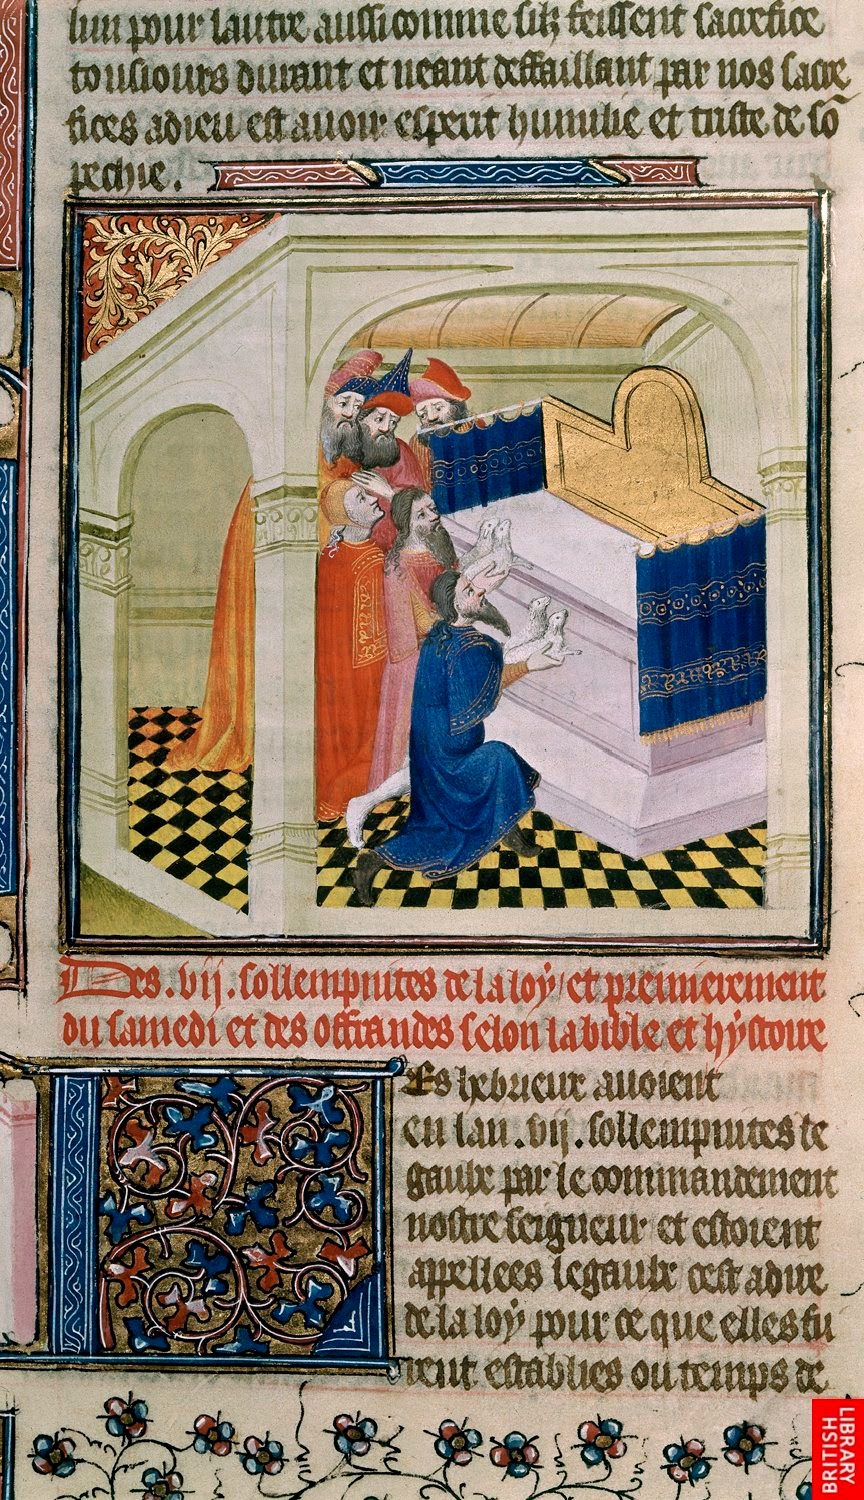 lun pour lautre aussi comme silz feissent sacrefice
tousiours durant et neant deffaillant par nos sacre
fices a dieu est auoir esperit humble et triste de sõ
pechie.
Des .vij. sollempnites de la loy / et premierement
du samedi et des offrandes selon la bible et hystoire
Es hebrieux auoient
en lan .vij. sollempnites le
gaulx par le commandement
nostre seigneur et estoient
appellees legaulx cest a dire
de la loy pour ce que elles fu
rent establies ou temps de
BRITISH
LIBRARY